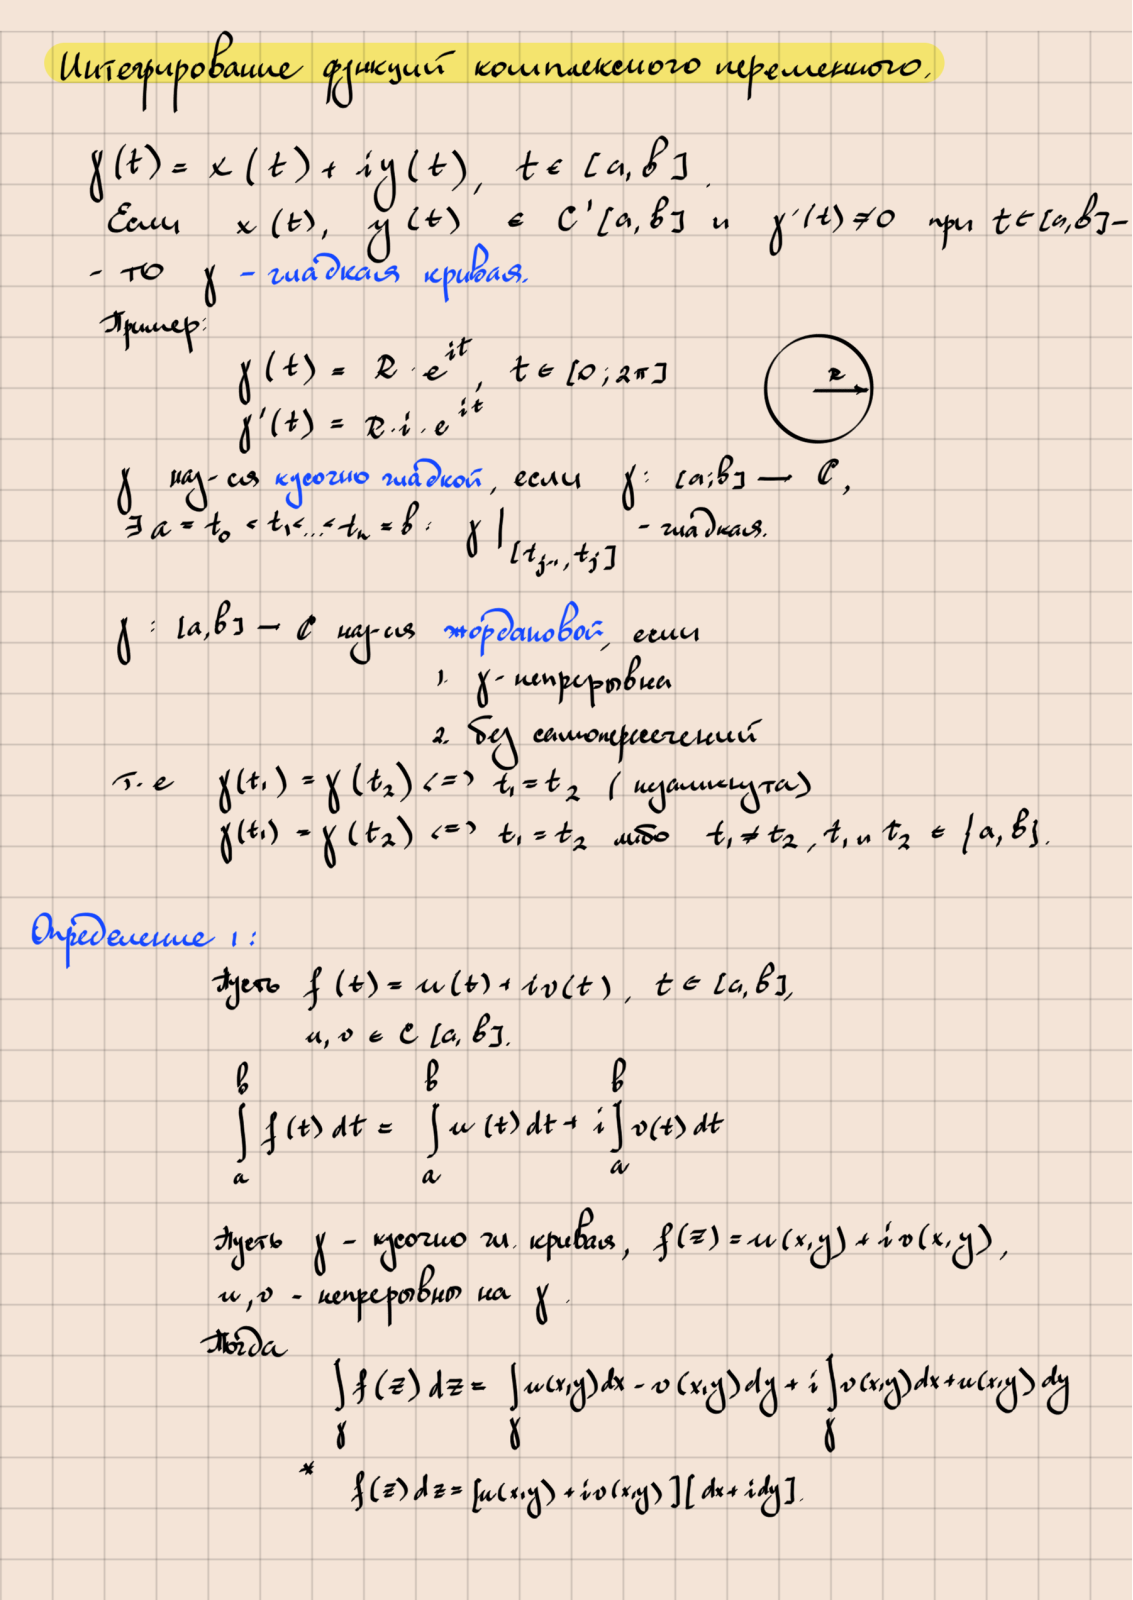 Интегрирование функций комплексного переменного.
γ(t) = x(t) + iy(t), t ∈ [a,b].
Если x(t), y(t) ∈ C'[a,b] и γ'(t) ≠ 0 при t ∈ [a,b] -
- то γ - гладкая кривая.
Пример:
γ(t) = R · e^{it}, t ∈ [0; 2π]
R
γ'(t) = R · i · e^{it}
γ наз-ся кусочно гладкой, если γ: [a;b] → C,
∃ a = t₀ < t₁ < ... < tₙ = b : γ|_{[t_{j-1}, t_j]} - гладкая.
γ : [a,b] → C наз-ся жордановой, если
1. γ - непрерывна
2. без самопересечений
т.е γ(t₁) = γ(t₂) <=> t₁ = t₂ (незамкнута)
γ(t₁) = γ(t₂) <=> t₁ = t₂ либо t₁ ≠ t₂, t₁ и t₂ ∈ {a, b}.
Определение 1:
Пусть f(t) = u(t) + iv(t), t ∈ [a,b],
u, v ∈ C[a,b].
∫_a^b f(t) dt = ∫_a^b u(t) dt + i ∫_a^b v(t) dt
Пусть γ - кусочно гл. кривая, f(z) = u(x,y) + iv(x,y),
u, v - непрерывны на γ.
Тогда
∫_γ f(z) dz = ∫_γ u(x,y)dx - v(x,y)dy + i ∫_γ v(x,y)dx + u(x,y)dy
* f(z)dz = [u(x,y) + iv(x,y)][dx + idy].